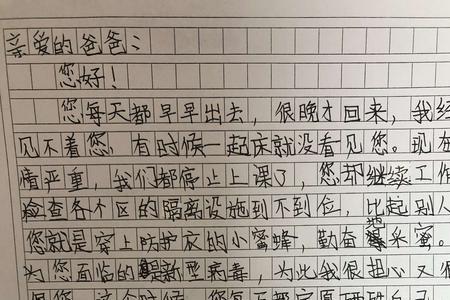 亲爱的爸爸：
您好！
您每天都早早出去，很晚才回来，我经
见不着您 有时候一起床就没看见您。现在
情严重，我们都停止上课了，您却继续工作
检查各个区的隔离设施到不到位，比起别人
您就是穿上防护衣的小蜜蜂，勤奋地采蜜。
为您面临的是新型病毒，为此我很担心又